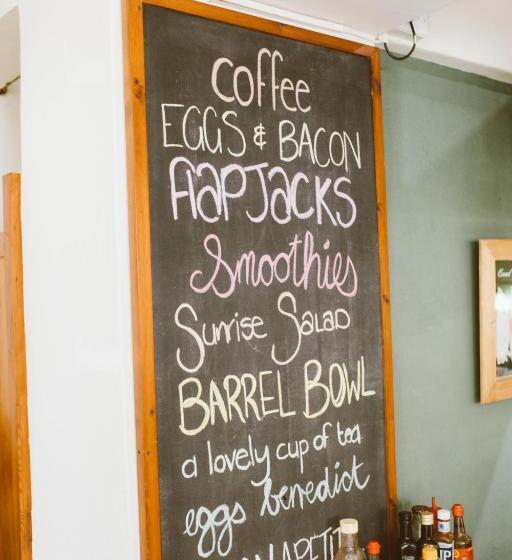 coffee
EGGS & BACON
flapJacks
Smoothies
Sunrise Salad
BARREL BOWL
a lovely cup of tea
eggs benedict